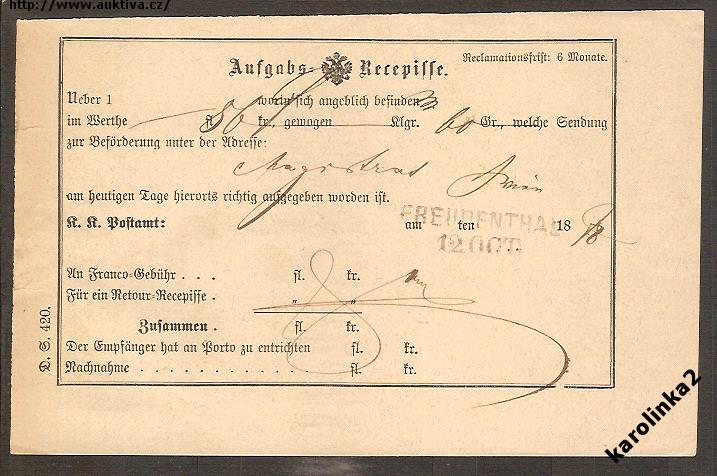 http://www.auktiva.cz/
Aufgabs- Recepisse.
Reclamationsfrist: 6 Monate.
Ueber 1 worin sich angeblich befinden
im Werthe fl. 50 kr., gewogen Klgr. 60 Gr., welche Sendung
zur Beförderung unter der Adresse:
Magistrat Wien
am heutigen Tage hierorts richtig aufgegeben worden ist.
K. K. Postamt: am ten 18
FREUDENTHAL
12 OCT
An Franco-Gebühr . . . fl. kr.
Für ein Retour-Recepisse . " "
Zusammen . fl. kr.
Der Empfänger hat an Porto zu entrichten fl. kr.
Nachnahme . . . . . . . . . . . . fl. kr.
D. S. 420.
karolinka2